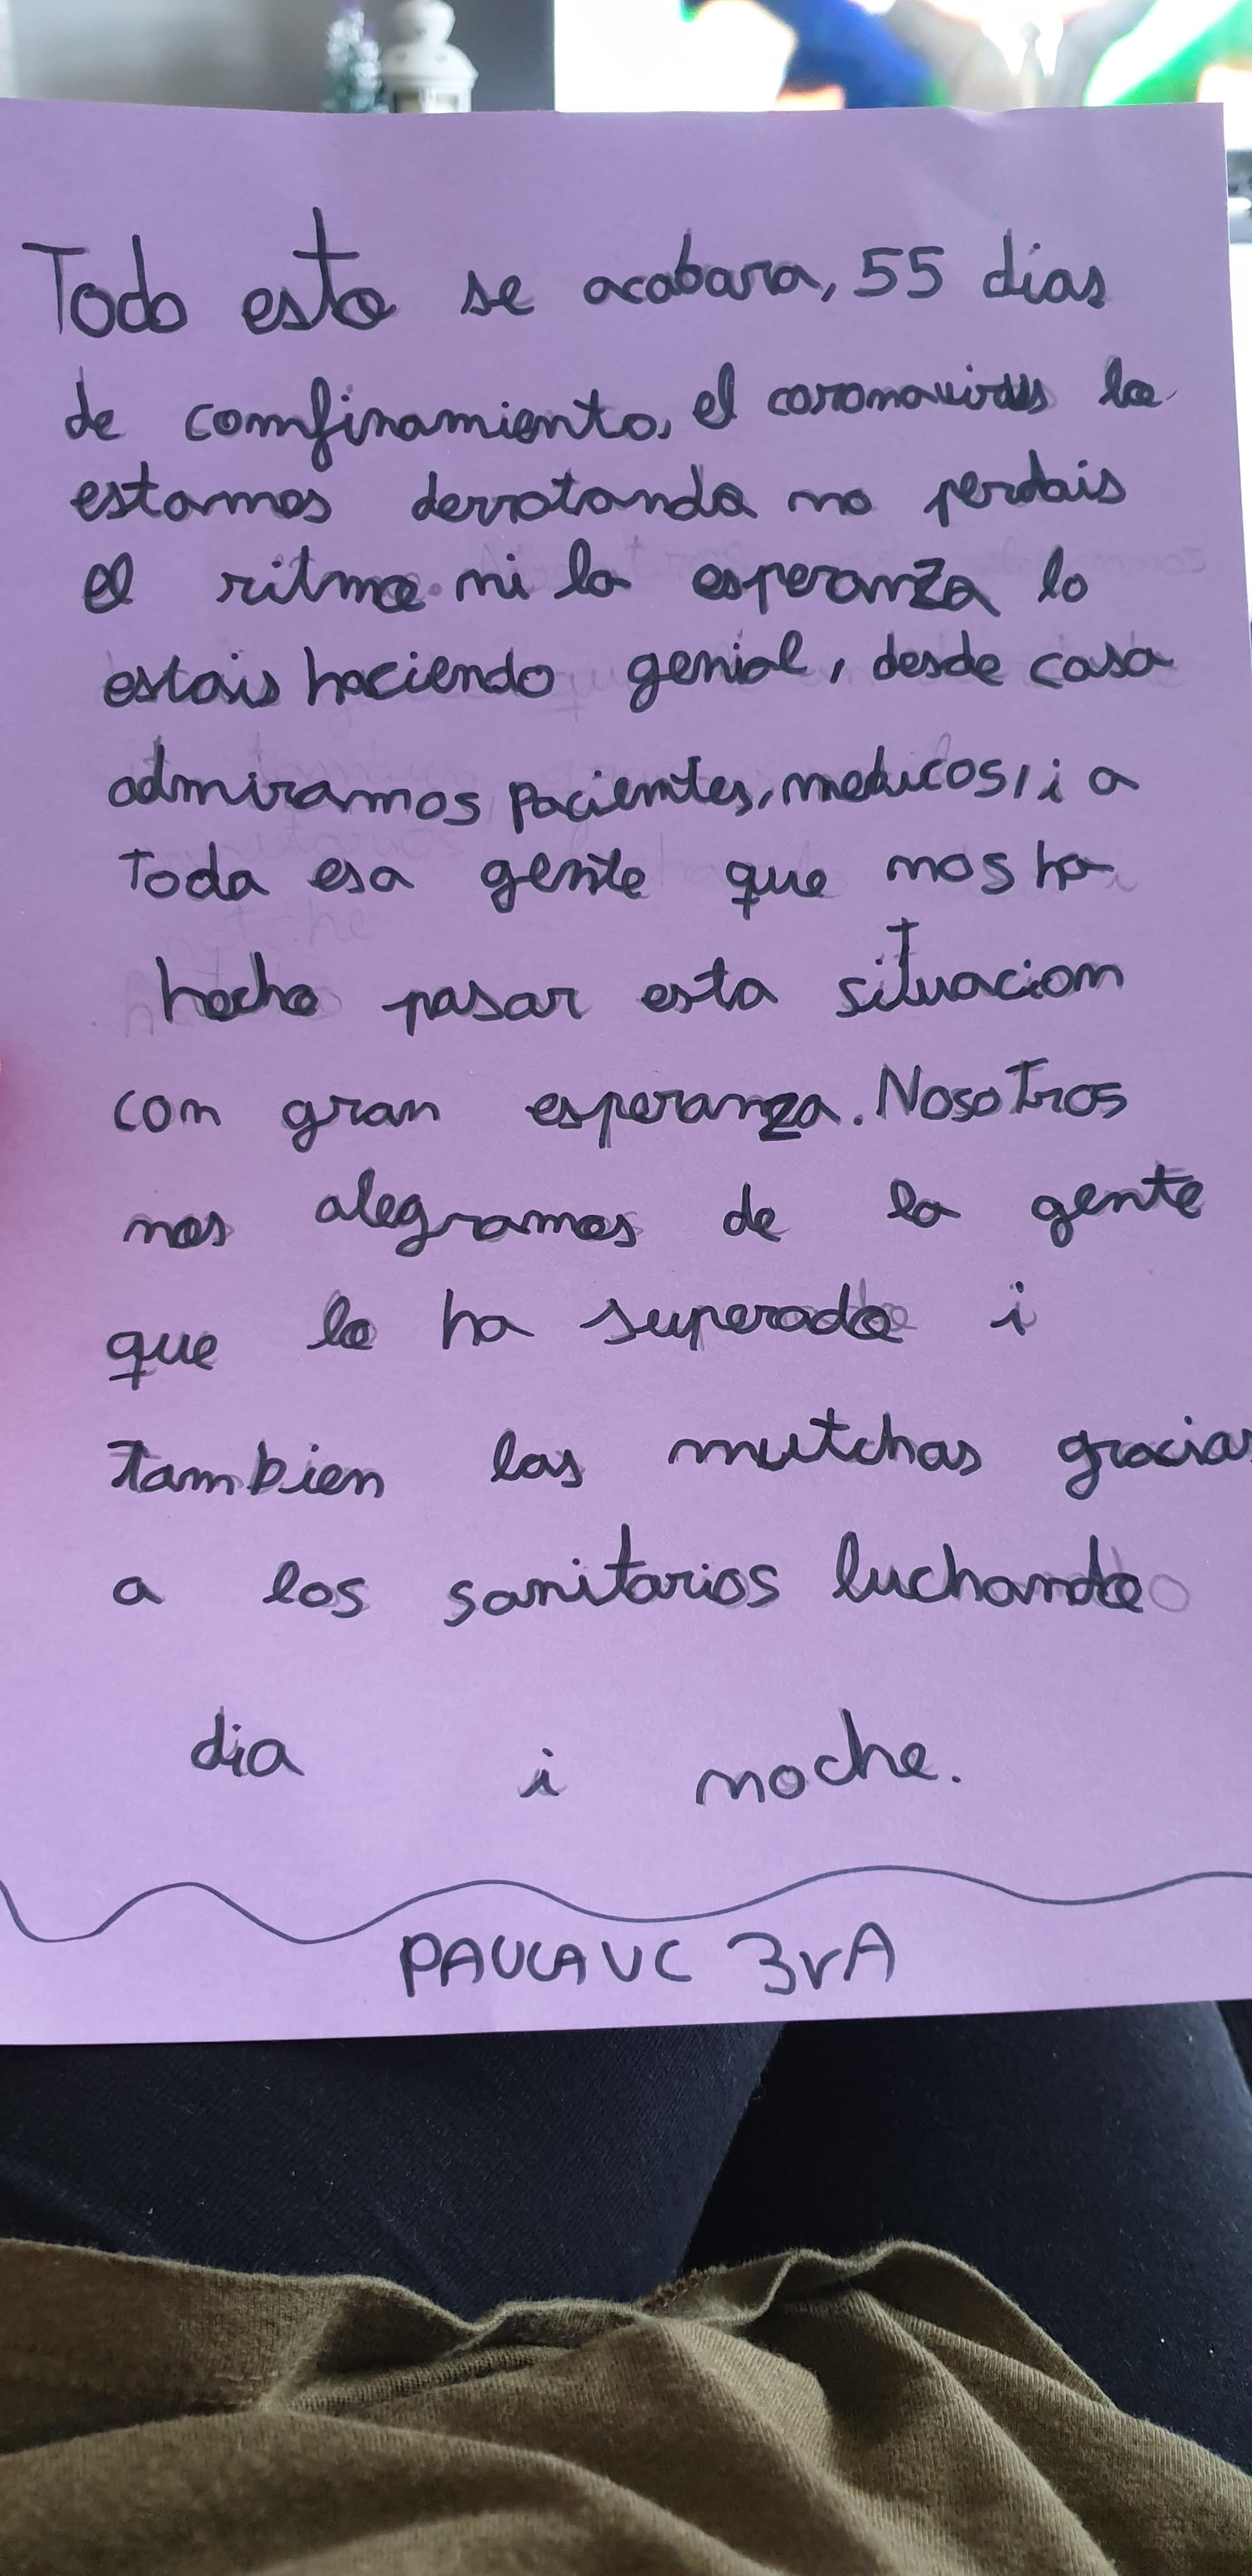 Todo esto se acabara, 55 dias
de comfinamiento, el coronavirus lo
estamos derrotando no perdais
el ritmo. ni la esperanza lo
estais haciendo genial, desde casa
admiramos pacientes, medicos, i a
toda esa gente que nos ha
hecho pasar esta situacion
con gran esperanza. Nosotros
nos alegramos de la gente
que lo ha superado i
tambien las mutchas gracias
a los sanitarios luchando
dia i noche.
3rA